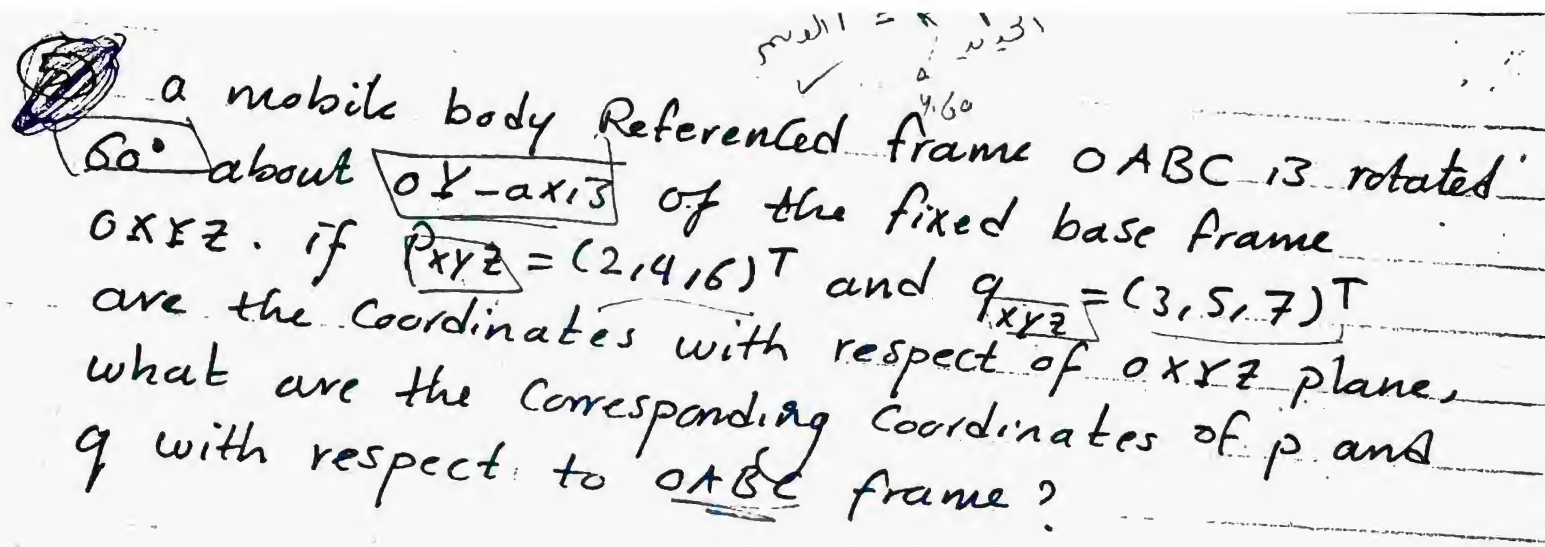 a mobile body Referenced frame OABC is rotated
60° about OY-axis of the fixed base frame
OXYZ. if Pxyz = (2,4,6)ᵀ and qxyz = (3,5,7)ᵀ
are the Coordinates with respect of OXYZ plane,
what are the Corresponding Coordinates of p and
q with respect to OABC frame?